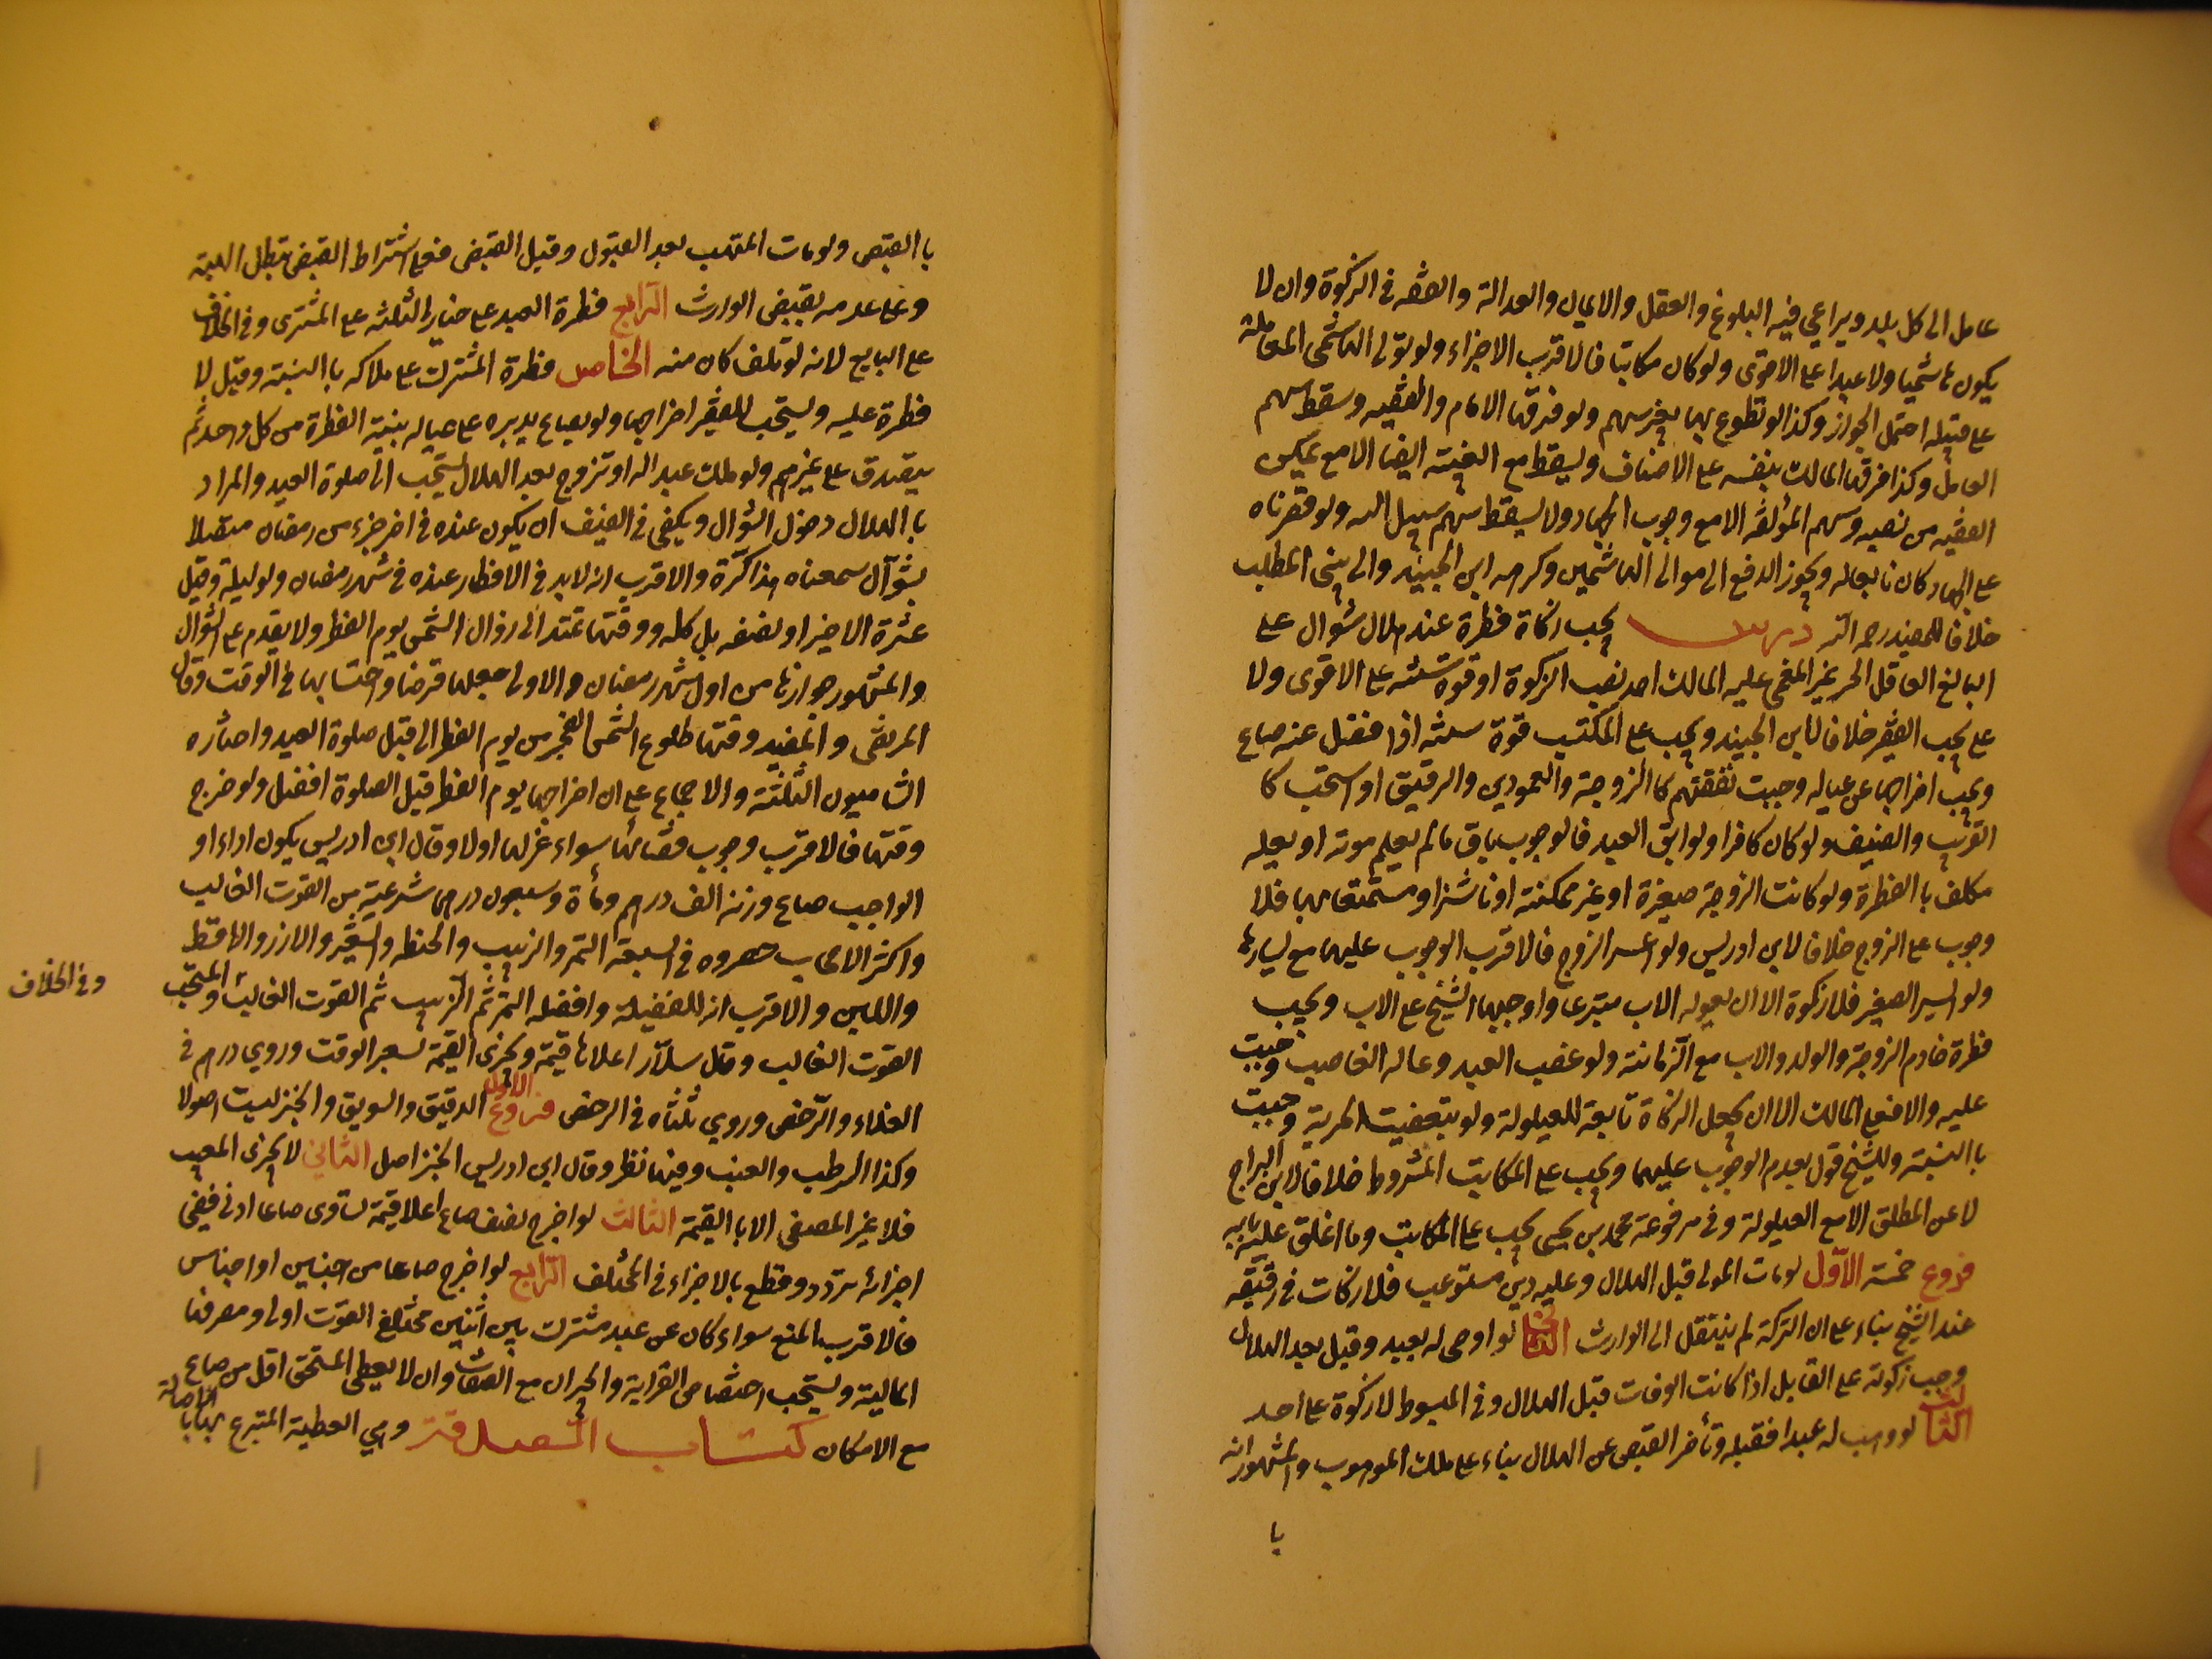 عامل الى كل بلد ويراعي فيه البلوغ والعقل والايمان والعدالة والفقه في الزكوة وان لا
يكون هاشميا ولا عبدا على الاقوى ولو كان مكاتبا فالاقرب الاجزاء ولو تولى الهاشمي العمالة
على قبيله احتمل الجواز وكذا لو تطوع بها بغير سهم ولو فرقها الامام والفقيه وسقط سهم
العامل وكذا فرقها المالك بنفسه على الاصناف ويسقط مع الغيبة ايضا الا مع تمكن
الفقيه من نصبه وسهم المؤلفة الا مع وجوب الجهاد ولا يسقط سهم سبيل الله ولو قصرناه
على الجهاد كان تابعا له ويجوز الدفع الى موالي الهاشمين وكرهه ابن الجنيد والى بني المطلب
خلافا للمفيد رحمه الله درس يجب زكاة فطرة عند هلال شوال على
البالغ العاقل الحر غير المغمى عليه المالك احد نصب الزكوة او قوة سنته على الاقوى ولا
على يجب الفقير خلافا لابن الجنيد ويجب على المكتسب قوة سنته اذا فضل عنه صاع
ويجب اخراجها عن عياله وجبت نفقتهم كالزوجة والعمودين والرقيق او استحب كا
القريب والضيف ولو كان كافرا ولو ابق العبد فالوجوب باق ما لم يعلم موته او يعله
مكلف بالفطرة ولو كانت الزوجة صغيرة او غير ممكنة او ناشزا او مستمتعا بها فلا
وجوب على الزوج خلافا لابن ادريس ولو اعسر الزوج فالاقرب الوجوب عليها مع يسارها
ولو ايسر الصغير فلا زكوة الا ان يعوله الاب متبرعا واوجبها الشيخ على الاب ويجب
فطرة خادم الزوجة والولد والاب مع الزمانة ولو غصب العبد وعاله الغاصب وجبت
عليه والا فعلى المالك الا ان يجعل الزكاة تابعة للعيلولة ولو تبعضت الحرية وجبت
بالنسبة وللشيخ قول بعدم الوجوب عليهما ويجب على المكاتب المشروط خلافا لابن البراج
لا عن المطلق الا مع العيلولة وفي مرفوعة محمد بن يحيى يجب على المكاتب وما اغلق عليه بابه
فروع خمسة الاول لو مات المولى قبل الهلال وعليه دين مستوعب فلا زكات في رقيقه
عند الشيخ بناء على ان التركة لم ينتقل الى الوارث الثاني لو اوصى له بعبد وقبل بعد الهلال
وجب زكوته على القابل اذا كانت الوفات قبل الهلال وفي المبسوط لا زكوة على احد
الثالث لو وهب له عبدا فقبله وتأخر القبض عن الهلال بناء على ملك الموهوب والمشهور انه
با
با القبض ولو مات المتهب بعد القبول وقبل القبض فعلى اشتراط القبض تبطل الهبة
وعلى عدمه يقبض الوارث الرابع فطرة العبد على خيار الثلثة على المشتري وفي الخلاف
على البايع لانه لو تلف كان منه الخامس فطرة المشترك على ملاكه بالنسبة وقيل لا
فطرة عليه ويستحب للفقير اخراجها ولو بصاع يديره على عياله بنية الفطرة من كل واحد ثم
يتصدق على غيرهم ولو ملك عبدا او تزوج بعد الهلال يستحب الى صلوة العيد والمراد
بالهلال دخول الشوال ويكفي في الضيف ان يكون عنده في اخر جزء من رمضان متصلا
بشوال سمعناه مذاكرة والاقرب انه لابد في الافطار عنده في شهر رمضان ولو ليلة وقيل
عشرة الاخير او نصفه بل كله ووقتها تمتد الى زوال الشمس يوم الفطر ولا يقدم على الشوال
والمشهور جوازها من اول شهر رمضان والاولى جعلها قرضا واحتسابها في الوقت وقال
المرتضى والمفيد وقتها طلوع الشمس الفجر من يوم الفطر الى قبل صلوة العيد واختاره
الشاميون الثلثة والاجماع على ان اخراجها يوم الفطر قبل الصلوة افضل ولو خرج
وقتها فالاقرب وجوب قضائها سواء عزلها اولا وقال ابن ادريس يكون اداء او
الواجب صاع وزنه الف درهم ومأة وسبعون درهما شرعية من القوت الغالب
واكثر الاصحاب حصروه في السبعة التمر والزبيب والحنطة والشعير والارز والاقط
واللبن والاقرب انه للفضيلة وافضله التمر ثم الزبيب ثم القوت الغالب والمستحب
وفي الخلاف
القوت الغالب وقال سلار اعلاها قيمة ويجزى القيمة بسعر الوقت وروي درهم في
الغلاء والرخص وروي ثلثاه في الرخص فروع الاول الدقيق والسويق والخبز ليست اصولا
وكذا الرطب والعنب وفيهما نظر وقال ابن ادريس الخبز اصل الثاني لا يجزى المعيب
فلا غير المصفى الا بالقيمة الثالث لو اخرج نصف صاع اعلا قيمة تساوى صاعا ادنى ففي
اجزائه تردد وقطع بالاجزاء في المختلف الرابع لو اخرج صاعا من جنسين او اجناس
فالاقرب المنع سواء كان عن عبد مشترك بين اثنين مختلفي القوت اولى ومصرفها
المالية ويستحب اختصاص القرابة والجيران مع الصفات وان لا يعطى المستحق اقل من صاع
مع الامكان كتاب الصدقة وهي العطية المتبرع بها بالاصالة